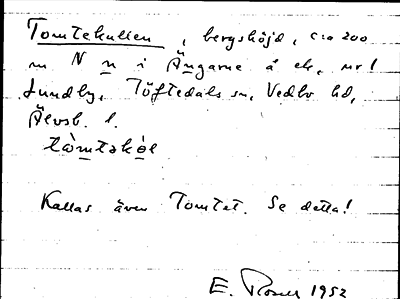 Tomtekullen, bergshöjd, c:a 200
m N n i Ängarne å ek. nr 1
Lundby, Töftedals sn, Vedbo hd,
Älvsb. l.
tòmtəkèl
Kallas även Tomtet. Se detta!
E. Rosell 1952